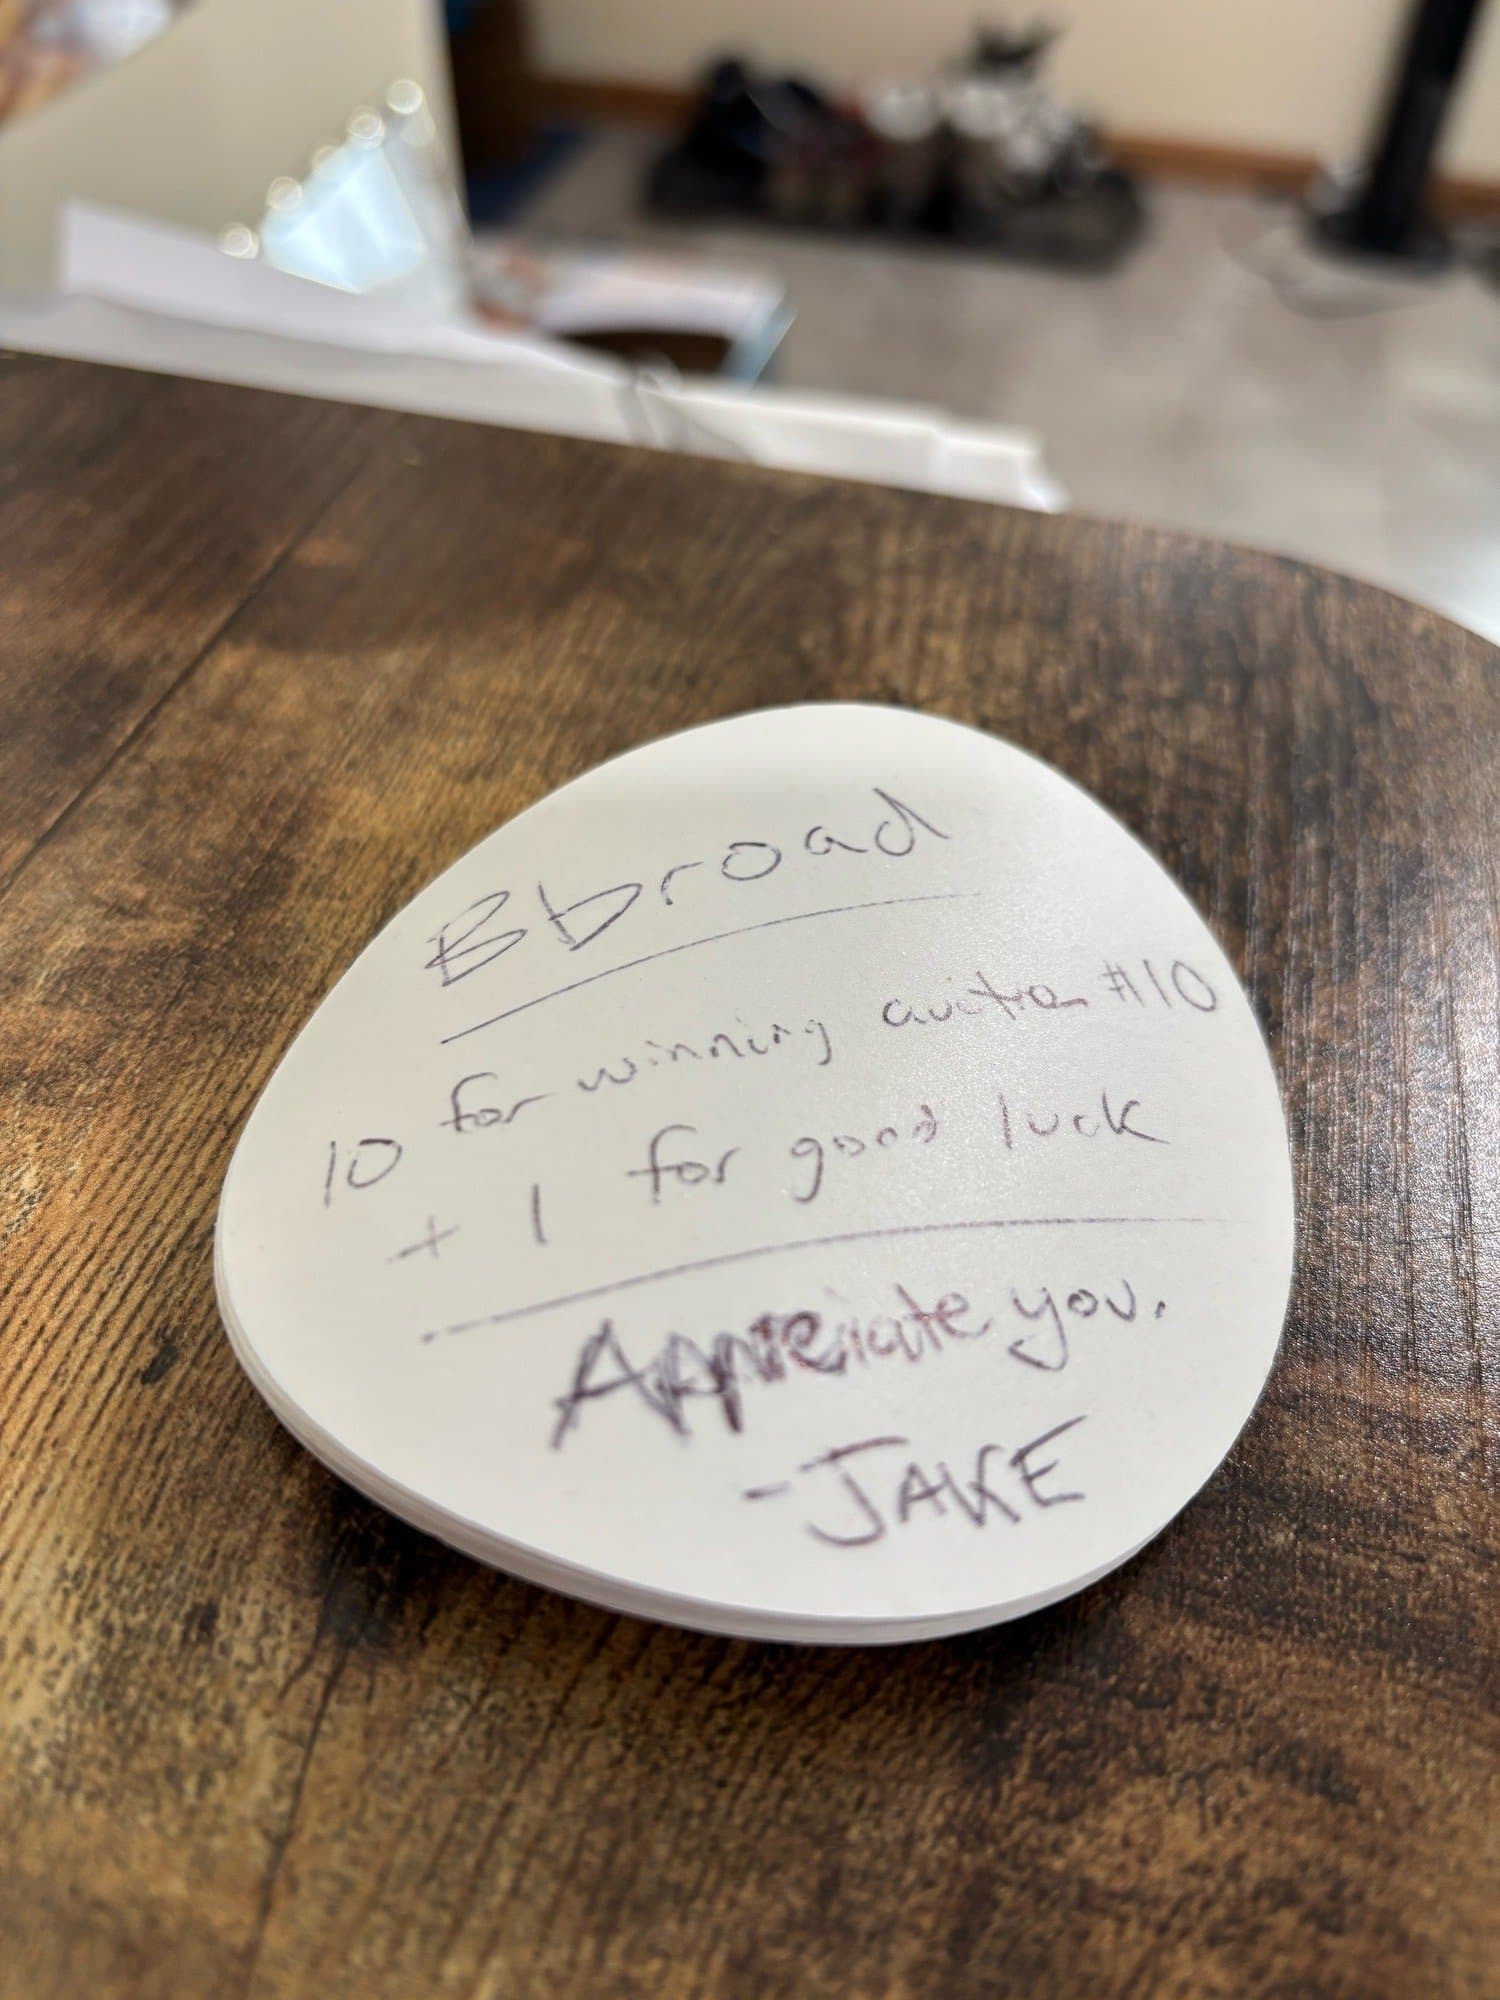 Bbroad
10 for winning auction #10
+ 1 for good luck
Appreciate you.
-JAKE